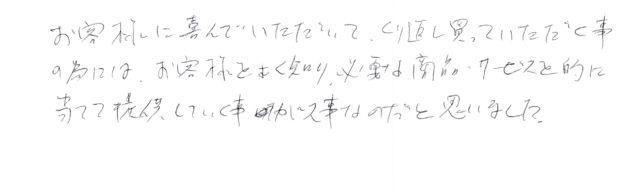 お客様に喜んでいただいて、くり返し買っていただく事
の為には、お客様をよく知り、必要な商品・サービスを的に
当てて提供していく事が大事なのだと思いました。